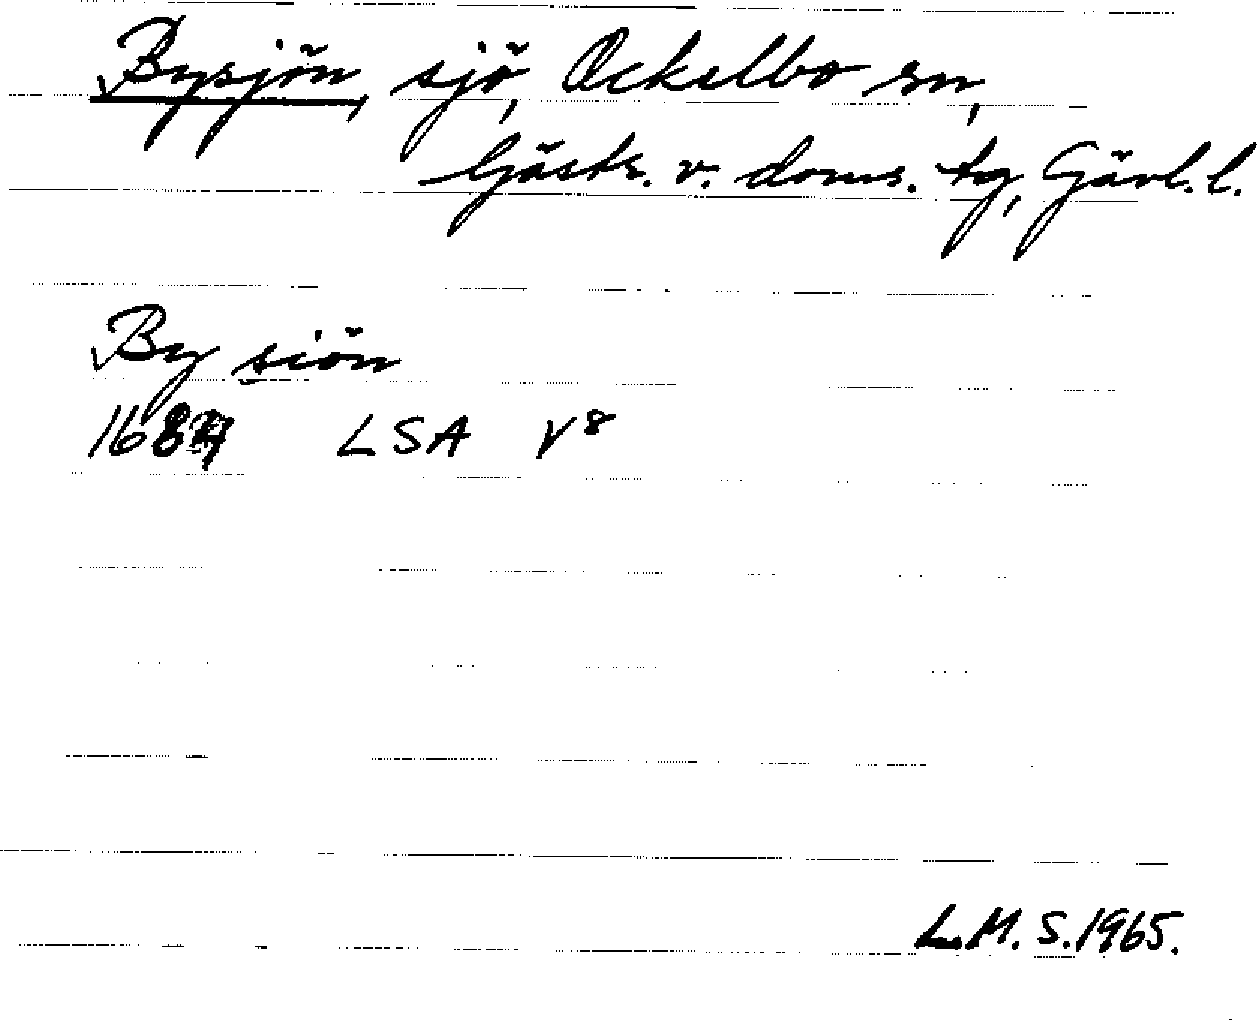 Bysjön, sjö, Ockelbo sn,
Gästr. v. doms. tg, Gävl. l.
By siön
LSA V 8
L.M.S. 1965.